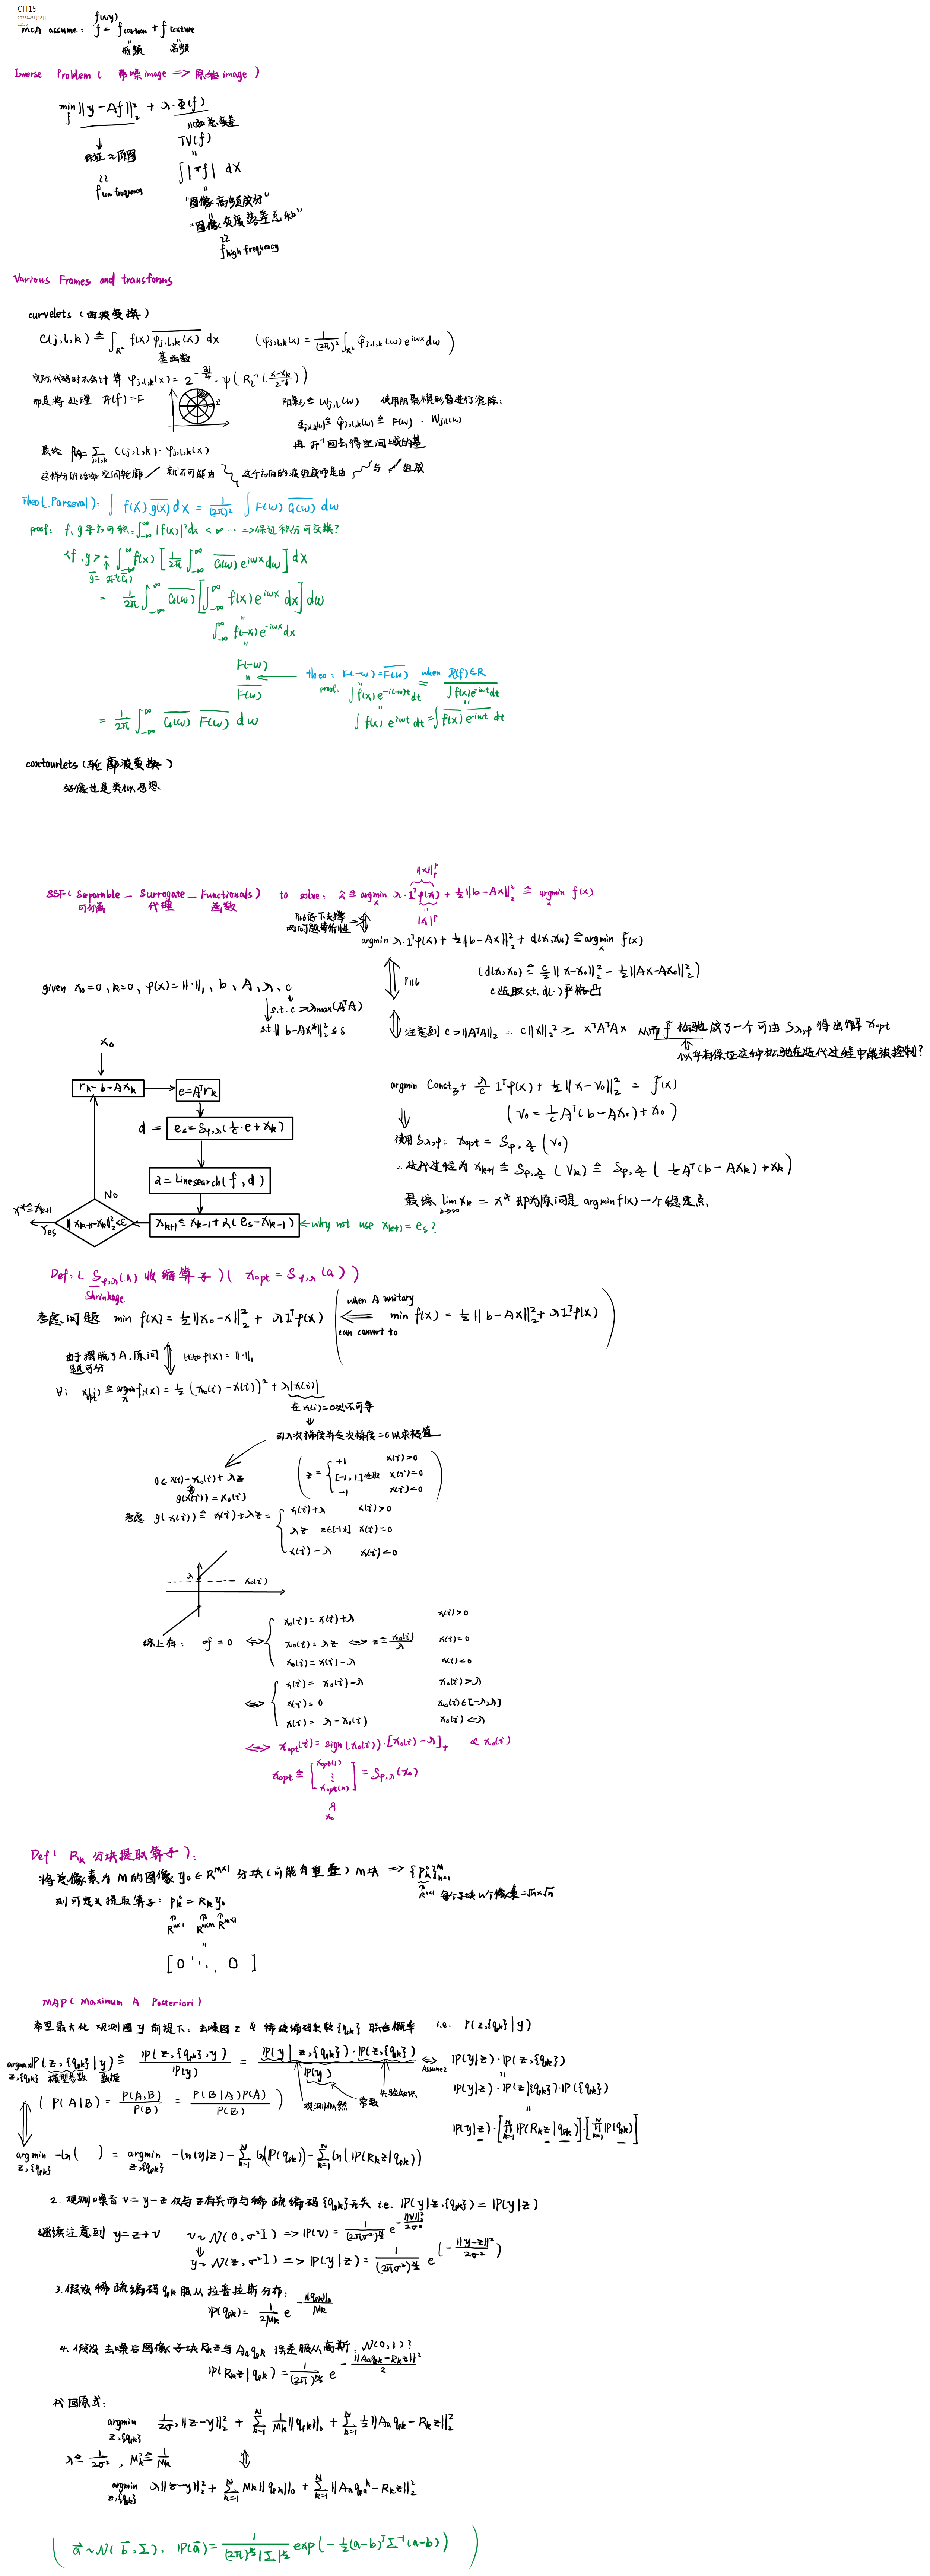 CH15
f(x,y)
MCA assume: f = f cartoon + f texture
低频 高频
Inverse Problem ( 带噪image => 原始image )
min_f ||y-Af||₂² + λ·Φ(f)
TV(f)
保证≈原图
∫|∇f| dX
f low frequency
"图像高频成分"
"图像灰度落差总和"
f high frequency
Various Frames and transforms
curvelets (曲波变换)
C(j,l,k) ≜ ∫_{R²} f(x) \overline{φ_{j,l,k}(x)} dx (φ_{j,l,k}(x) = 1/(2π)² ∫_{R²} φ̂_{j,l,k}(w) e^{iwx} dw)
基函数
实际代码时不会计算 φ_{j,l,k}(x) = 2^{-3j/4}·ψ(R_l^{-1}(x-x_k / 2^{-j}))
而是将处理 F(f)=F
阴影 ≜ W_{j,l}(w) 使用阴影楔形窗进行滤除:
φ̂_{j,l,k}(w) ≜ F(w)·W_{j,l}(w)
再 F⁻¹ 回去得空间域的基
最终 f(x) = Σ_{j,l,k} C(j,l,k)·φ_{j,l,k}(x)
Theo(Parseval): ∫ f(x) \overline{g(x)} dx = 1/(2π)² ∫ F(w) \overline{G(w)} dw
proof: f,g平方可积: ∫_{-∞}^{∞} |f(x)|² dx < ∞ ⋯ => 保证积分可交换?
<f,g> = ∫_{-∞}^{∞} f(x) [1/2π ∫_{-∞}^{∞} \overline{G(w)} e^{iwx} dw] dx
= 1/2π ∫_{-∞}^{∞} \overline{G(w)} [∫_{-∞}^{∞} f(x) e^{iwx} dx] dw
∫_{-∞}^{∞} f(-x) e^{-iwx} dx
F(-w)
\overline{F(w)} ← theo: F(-w) = \overline{F(w)} when R(f)∈R
proof: ∫ f(x) e^{-i(-w)t} dt = \overline{∫ f(x) e^{-iwt} dt}
∫ f(x) e^{iwt} dt = ∫ \overline{f(x) e^{-iwt}} dt
= 1/2π ∫_{-∞}^{∞} \overline{G(w)} \overline{F(w)} dw
contourlets (轮廓波变换)
好像也是类似思想
||x||_p^p
SSF( Separable _ Surrogate _ Functionals ) to solve: x̂ ≜ argmin_x λ·1ᵀρ(x) + ½||b-Ax||₂² ≜ argmin_x f(x)
可分离 代理 函数
|x|^p
argmin λ·1ᵀρ(x) + ½||b-Ax||₂² + d(x,x₀) ≜ argmin_x f̃(x)
(d(x,x₀) ≜ c/2||x-x₀||₂² - ½||Ax-Ax₀||₂²)
c选取s.t. d(·)严格凸
given x₀=0, k=0, ρ(x)=||·||₁, b, A, λ, c
s.t. c > λmax(AᵀA)
s.t. ||b-Ax*||₂² ≤ δ
注意到 c>||AᵀA||₂ ∴ c||x||₂² ≥ xᵀAᵀAx 从而 f̃ 松弛成了一个可由 S_{λ,ρ} 得出解 x_opt
似乎有保证这种松弛在迭代过程中能被控制?
x₀
r_k = b-Ax_k
e = Aᵀr_k
d = e_s = S_{ρ,λ}(1/c·e + x_k)
α = Linesearch(f, d)
x_{k+1} ≜ x_{k-1} + α(e_s - x_{k-1}) ← why not use x_{k+1} = e_s?
||x_{k+1}-x_k||₂² < ε
No
Yes
x* ≜ x_{k+1}
argmin Const₃ + λ/c 1ᵀρ(x) + ½||x-v₀||₂² = f̃(x)
(v₀ = 1/c Aᵀ(b-Ax₀) + x₀)
使用S_{λ,ρ}: x_opt = S_{ρ,λ/c}(v₀)
∴ 迭代过程为 x_{k+1} ≜ S_{ρ,λ/c}(v_k) ≜ S_{ρ,λ/c}(1/c Aᵀ(b-Ax_k) + x_k)
最终 lim_{k→∞} x_k = x* 即为原问题 argmin f(x) 一个稳定点.
Def: ( S_{ρ,λ}(a) 收缩算子 ) ( x_opt = S_{ρ,λ}(a) )
Shrinkage
考虑问题 min f(x) = ½||x₀-x||₂² + λ1ᵀρ(x) ( when A unitary can convert to <= min f(x) = ½||b-Ax||₂² + λ1ᵀρ(x) )
由于摆脱了A,原问题可分
比如 ρ(x) = ||·||₁
∀i x_opt(i) ≜ argmin_x f_i(x) = ½(x₀(i)-x(i))² + λ|x(i)|
在x(i)=0处不可导
引入次梯度并令次梯度=0以求极值
0 ∈ x(i)-x₀(i)+λz
( z = { +1 x(i)>0
[-1,1]任取 x(i)=0
-1 x(i)<0 )
g(x(i)) = x₀(i)
考虑 g(x(i)) ≜ x(i)+λz = { x(i)+λ x(i)>0
λz z∈[-1,1] x(i)=0
x(i)-λ x(i)<0
λ x₀(i)
综上有: ∂f=0 <=> { x₀(i) = x(i)+λ x(i)>0
x₀(i) = λz <=> z = x₀(i)/λ x(i)=0
x₀(i) = x(i)-λ x(i)<0
<=> { x(i) = x₀(i)-λ x₀(i)>λ
x(i) = 0 x₀(i)∈[-λ,λ]
x(i) = λ-x₀(i) x₀(i)<-λ
<=> x_opt(i) = sign(x₀(i))·[x₀(i)-λ]₊ ∝ x₀(i)
x_opt ≜ [x_opt(1) ⋮ x_opt(n)] = S_{ρ,λ}(x₀)
x₀
Def( R_k 分块提取算子 ):
将总像素为M的图像 y₀∈R^{M×1} 分块(可能有重叠)M块 => {p_k^0}_{k=1}^M
R^{n×1} 每个子块n个像素=√n×√n
则可定义提取算子: p_k^0 = R_k y₀
R^{n×1} R^{n×M} R^{M×1}
[ 0 ⋱ 0 ]
MAP( Maximum A Posteriori )
希望最大化 观测图y前提下: 去噪图z & 稀疏编码系数{q_k} 联合概率 i.e. P(z,{q_k}|y)
argmax_{z,{q_k}} P(z,{q_k}|y) ≜ P(z,{q_k},y)/P(y) = P(y|z,{q_k})·P(z,{q_k})/P(y) <=> P(y|z)·P(z,{q_k})
模型参数 数据 观测似然 常数 先验知识 Assume2
P(y|z)·P(z|{q_k})·P({q_k})
( P(A|B) = P(A,B)/P(B) = P(B|A)P(A)/P(B) )
P(y|z)·[∏_{k=1}^N P(R_k z|q_k)]·[∏_{k=1}^N P(q_k)]
argmin_{z,{q_k}} -ln( ) = argmin_{z,{q_k}} -ln(y|z) - Σ_{k=1}^N ln(P(q_k)) - Σ_{k=1}^N ln(P(R_k z|q_k))
2. 观测噪音 v=y-z 仅与z有关而与稀疏编码{q_k}无关 i.e. P(y|z,{q_k}) = P(y|z)
继续注意到 y=z+v v~N(0,σ²I) => P(v) = 1/(2πσ²)^{n/2} e^{-||v||²/2σ²}
y~N(z,σ²I) => P(y|z) = 1/(2πσ²)^{n/2} e^(-||y-z||²/2σ²)
3. 假设稀疏编码q_k服从拉普拉斯分布:
P(q_k) = 1/2M_k e^{-||q_k||₀/M_k}
4. 假设去噪后图像子块R_k z与A_a q_k误差服从高斯: N(0,1)?
P(R_k z|q_k) = 1/(2π)^{n/2} e^{-||A_a q_k-R_k z||²/2}
代回原式:
argmin_{z,{q_k}} 1/2σ²||z-y||₂² + Σ_{k=1}^N 1/M_k||q_k||₀ + Σ_{k=1}^N ½||A_a q_k-R_k z||₂²
λ ≜ 1/2σ², M_k ≜ 1/M_k
argmin_{z,{q_k}} λ||z-y||₂² + Σ_{k=1}^N M_k||q_k||₀ + Σ_{k=1}^N ||A_a q_k-R_k z||₂²
( a⃗~N(b⃗,Σ), P(a⃗) = 1/((2π)^{n/2}|Σ|^{1/2}) exp(-½(a-b)ᵀΣ⁻¹(a-b)) )